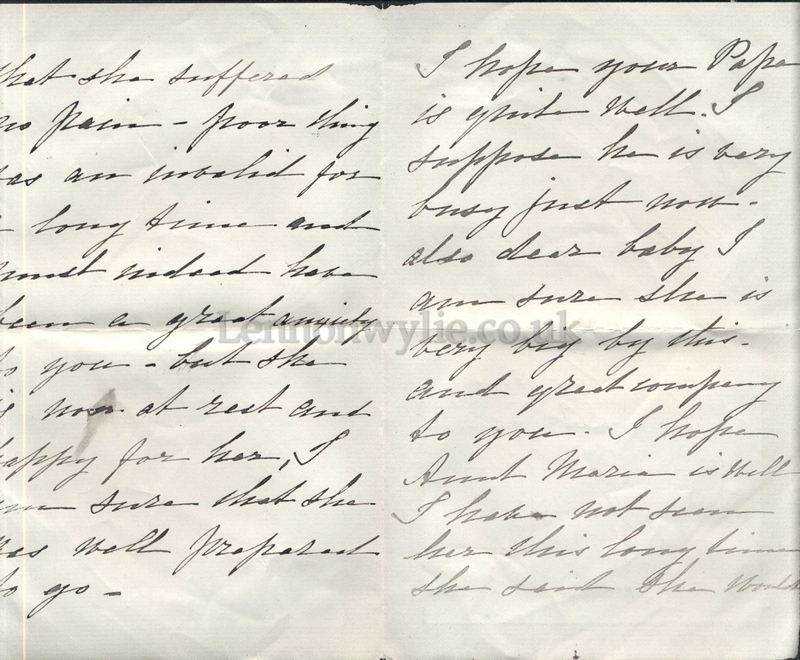 that she suffered
no pain - poor thing
was an invalid for
a long time and
must indeed have
been a great anxiety
to you - but she
is now at rest and
happy for her, I
am sure that she
was well prepared
to go -
I hope your Papa
is quite well. I
suppose he is very
busy just now -
also dear baby I
am sure she is
very big by this -
and great company
to you. I hope
Aunt Maria is well
I have not seen
her this long time
she said she would
Lennonwylie.co.uk